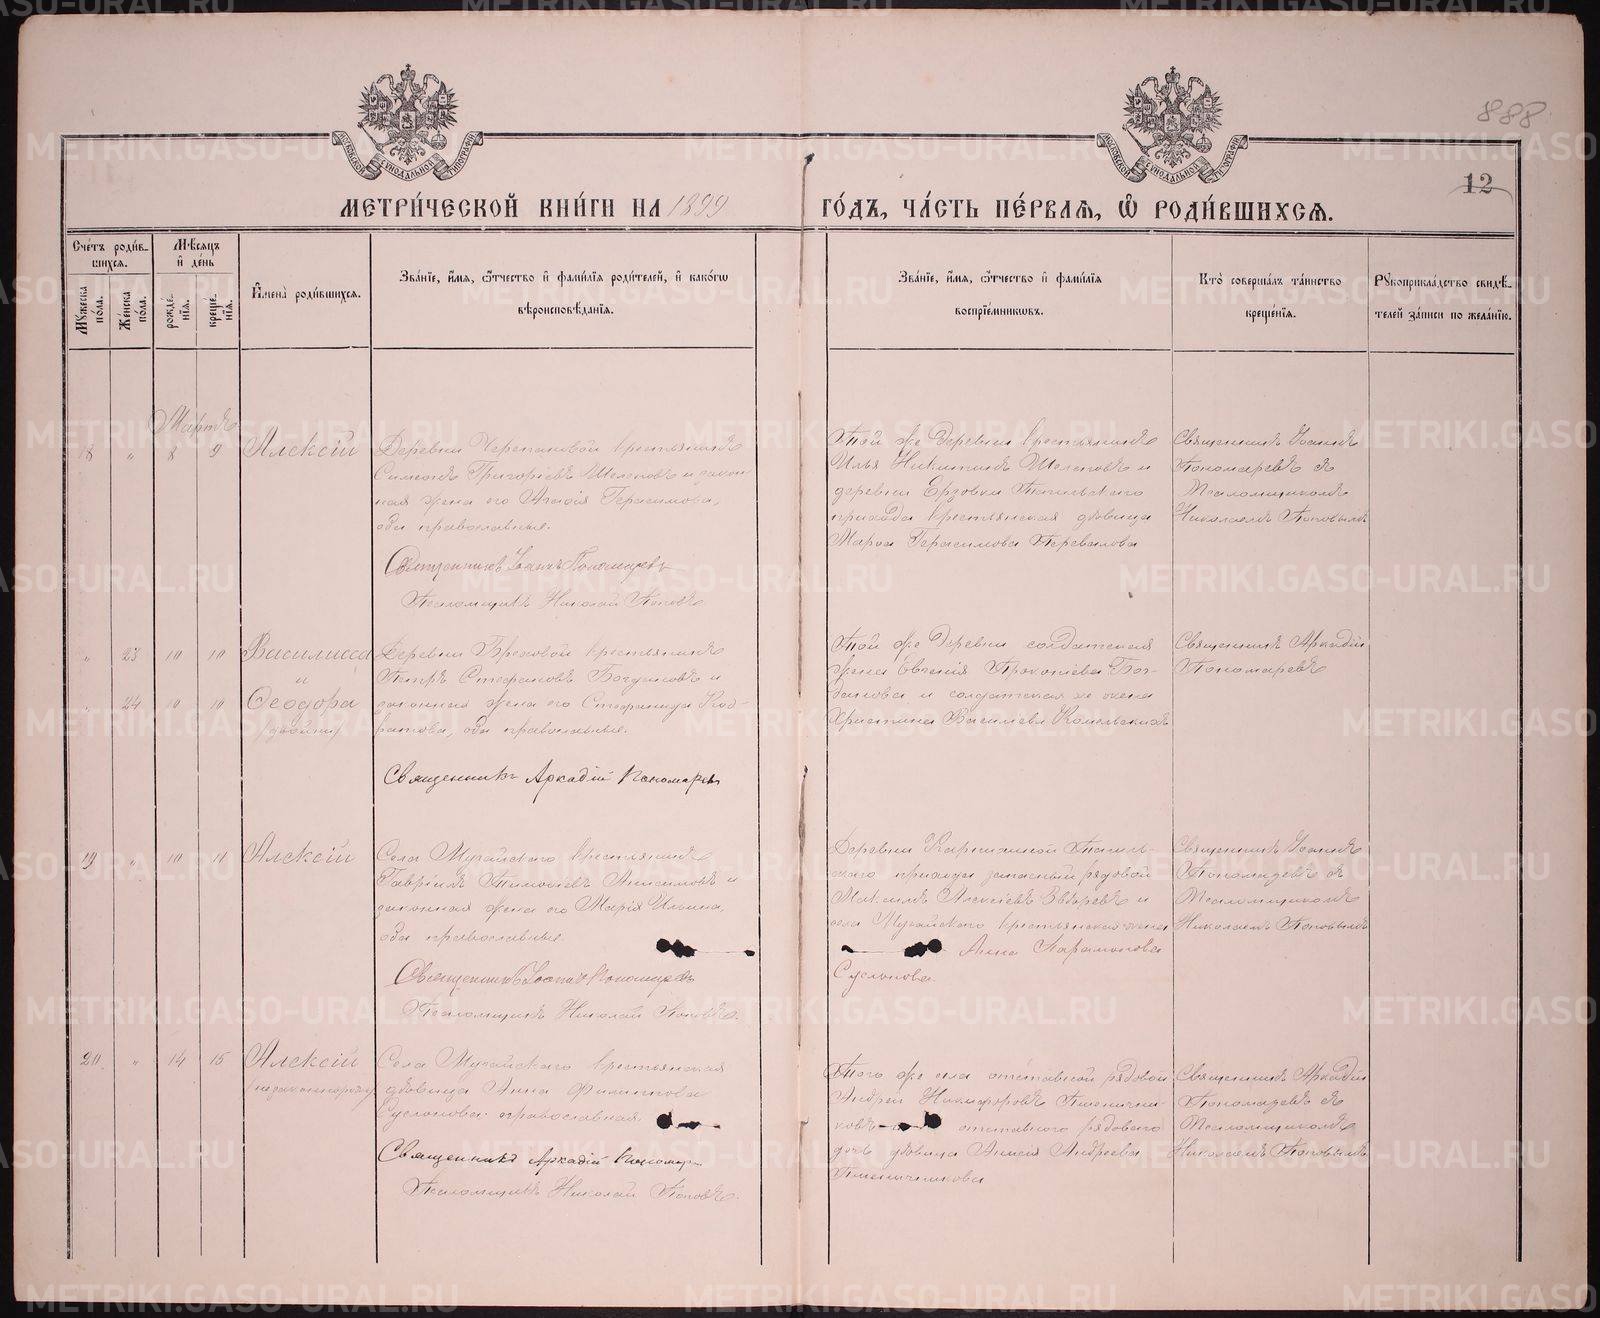 888
12
МОСКОВСКОЙ СѴНОДАЛЬНОЙ ТИПОГРАФІИ
МОСКОВСКОЙ СѴНОДАЛЬНОЙ ТИПОГРАФІИ
МЕТРИ́ЧЕСКОЙ КНИ́ГИ НА 1899 ГО́ДЪ, ЧА́СТЬ ПЕ́РВАЯ, Ѡ҆ РОДИ́ВШИХСЯ.
Сче́тъ роди́в-
шихся.
Мꙋ́жеска по́ла.
Же́нска по́ла.
Мѣ́сяцъ
и҆ де́нь
рожде́-
нїя.
креще́-
нїя.
И҆мена̀ роди́вшихся.
Зва́нїе, и҆́мя, ѻ҆́тчество и҆ фами́лїя роди́телей, и҆ како́гѡ
вѣроисповѣ́данїя.
Зва́нїе, и҆́мя, ѻ҆́тчество и҆ фами́лїя
воспрїе́мникѡвъ.
Кто̀ соверша́лъ та́инство
креще́нїя.
Рꙋкоприкла́дство свидѣ́-
телей за́писи по жела́нїю.
Мартъ
18 " 8 9 Алексій
Деревни Черепановой крестьянинъ
Симеонъ Григоріевъ Шелеповъ и закон
ная жена его Агаѳія Герасимова,
оба православные.
Священникъ Іоаннъ Пономаревъ
Псаломщикъ Николай Поповъ
Той же деревни крестьянинъ
Илья Никитинъ Шелеповъ и
деревни Ерзовки Тагильскаго
прихода крестьянская дѣвица
Марѳа Герасимова Перевалова
Священникъ Іоаннъ
Пономаревъ съ
Псаломщикомъ
Николаемъ Поповымъ
" 23 10 10 Василисса
и
" 24 10 10 Ѳеодора
(двойни)
Деревни Бреховой крестьянинъ
Петръ Стефановъ Богдановъ и
законная жена его Стефанида
оба православные.
Священникъ Аркадій Пономаревъ
Той же деревни солдатская
жена Евгенія Прокопіева Бог-
данова и солдатская же жена
Христина Васильева Комельскихъ
Священникъ Аркадій
Пономаревъ
19 " 10 11 Алексій
Села Мугайского крестьянинъ
Гавріилъ Тимоѳіевъ Анисимовъ и
законная жена его Марія Ильина,
оба православные.
Священникъ Іоаннъ Пономаревъ
Псаломщикъ Николай Поповъ.
Деревни Тагиль-
скаго прихода запасный рядовой
Максимъ Алексіевъ и
села Мугайского крестьянская жена
Анна Парамонова
Суслонова.
Священникъ Іоаннъ
Пономаревъ съ
Псаломщикомъ
Николаемъ Поповымъ
20 " 14 15 Алексій
(незаконнорож.)
Села Мугайского крестьянская
дѣвица Анна Филиппова
Суслонова православная.
Священникъ Аркадій Пономар
Псаломщикъ Николай Поповъ.
Того же села отставной рядовой
Андрей Никифоровъ Пшенични-
ковъ отставного рядового
дочь дѣвица Анисія Андреева
Пшеничникова
Священникъ Аркадій
Пономаревъ съ
Псаломщикомъ
Николаемъ Поповымъ
METRIKI.GASO-URAL.RU